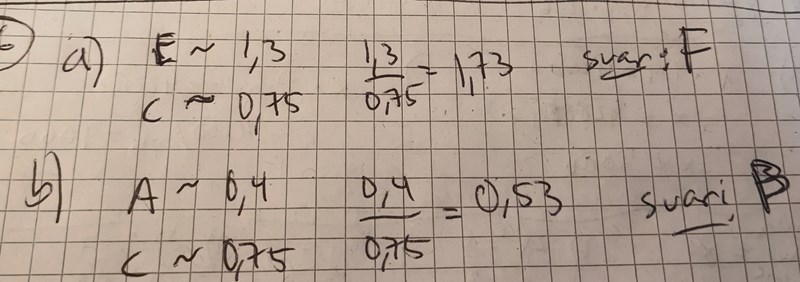 a) E ~ 1,3 1,3/0,75 = 1,73 svar: F
C ~ 0,75
b) A ~ 0,4 0,4/0,75 = 0,53 svar: B
C ~ 0,75